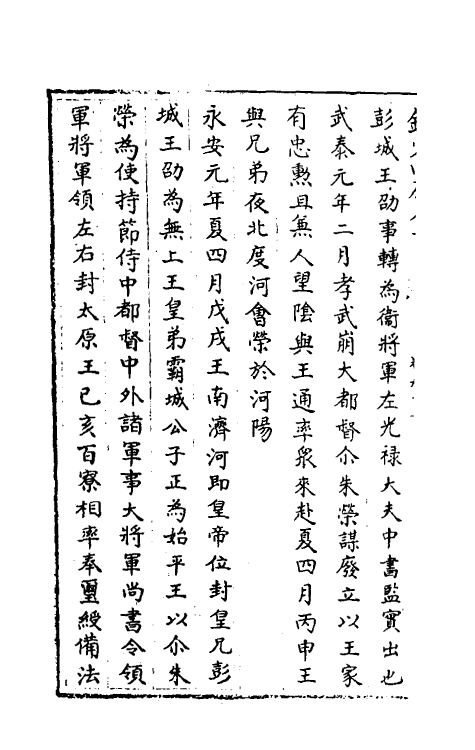 彭城王劭事轉為衞將軍左光禄大夫中書監實出也
武泰元年二月孝武崩大都督尒朱榮謀廢立以王家
有忠勲且兼人望陰與王通率衆來赴夏四月丙申王
與兄弟夜北度河會榮於河陽
永安元年夏四月戊戌王南濟河即皇帝位封皇兄彭
城王劭為無上王皇弟霸城公子正為始平王以尒朱
榮為使持節侍中都督中外諸軍事大將軍尚書令領
軍將軍領左右封太原王已亥百寮相率奉璽綬備法